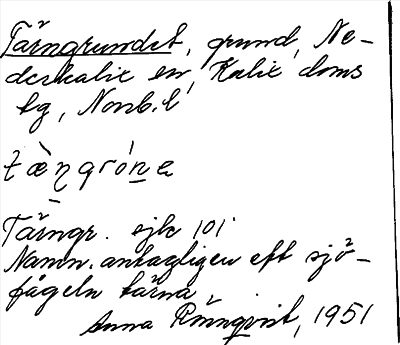 Tärngrundet, grund, Ne-
derkalix sn, Kalix doms
tg, Norrb. l
tæ̀ŋgrón̲e
Tärngr. sjk 101
Namn. antagligen eft sjö-
fågeln tärna
Anna Rönnqvist, 1951